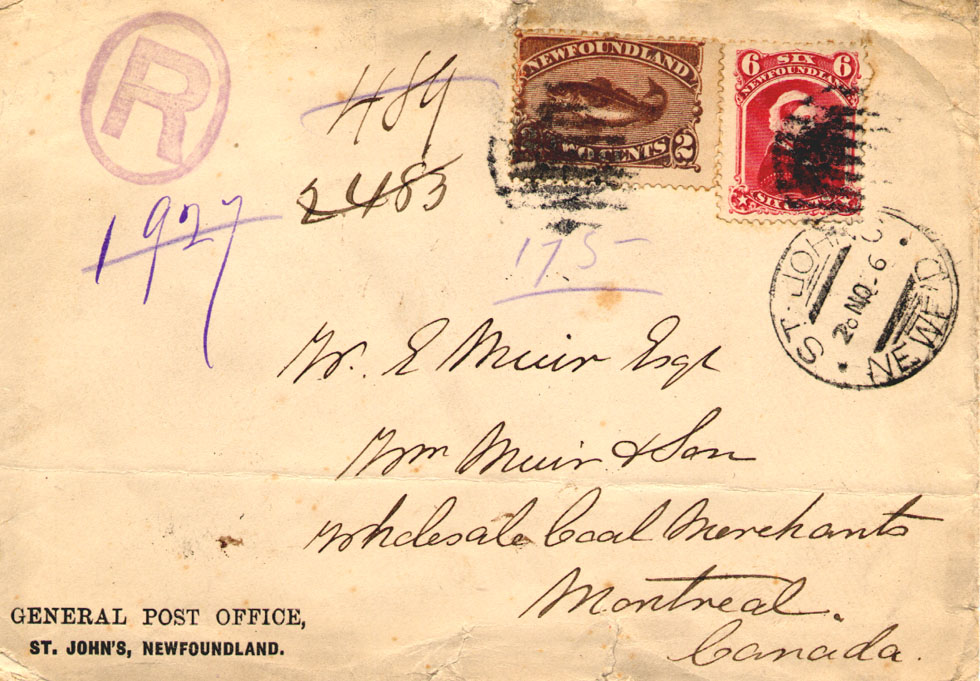 R
489
2483
1927
175-
NEWFOUNDLAND
TWO CENTS 2
6 SIX 6
NEWFOUNDLAND
SIX
ST. JOHN'S
NEWF'D
NO 6
W. E Muir Esqr
Wm Muir & Son
Wholesale Coal Merchants
Montreal.
Canada.
GENERAL POST OFFICE,
ST. JOHN'S, NEWFOUNDLAND.